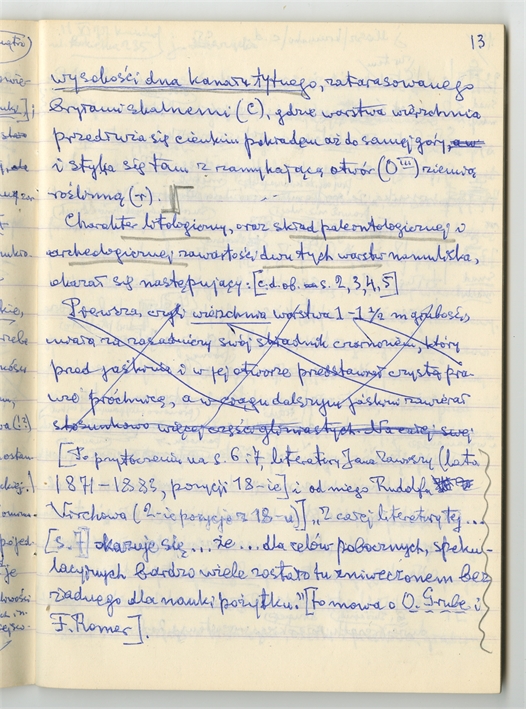 13
wysokości dna kanału tylnego, zatarasowanego
bryłami skalnemi (C), gdzie warstwa wierzchnia
przedłuża się cienkim pokładem aż do samej góry,
i styka się tam z zamykającą otwór (O III) ziemią
roślinną (r).
Charakter litologiczny, oraz skład paleontologicznej i
archeologicznej zawartości dwu tych warstw namuliska,
okazał się następujący: [c.d. ob. s. 2, 3, 4, 5]
Pierwsza, czyli wierzchnia warstwa 1-1 1/2 m grubości,
uważa za zasadniczy swój składnik czarnoziem, który
przed jaskinią i w jej otworze przedstawiał czystą pra-
wie próchnicę, a w ciągu dalszym jaskini zawierał
stosunkowo więcej części gliniastych. Na całej swej
[Po przytoczeniu na s. 6 i 7, literatury Jana Zawiszy (lata
1871-1882, pozycji 18-ie] i od niego Rudolfa
Virchowa (2-ie pozycje z 18-u)] „Z całej literatury tej...
[s. 7] okazuje się... że... dla celów pobocznych, speku-
lacyjnych bardzo wiele zostało tu zniweczonem bez
żadnego dla nauki pożytku." [to mowa o O. Grube i
F. Römer].